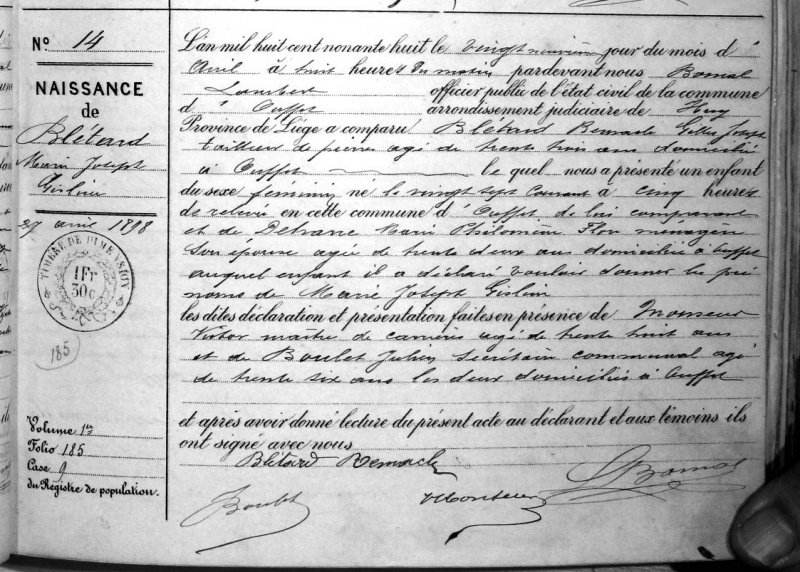 N° 14
NAISSANCE
de
Blétard
Marie Joseph
Gislain
27 avril 1898
TIMBRE DE DIMENSION
1Fr
30c
185
Volume 1er
Folio 185
Case 9
du Régistre de population.
L'an mil huit cent nonante huit le vingt neuvième jour du mois d'
Avril à huit heures du matin pardevant nous Bomal
Lambert officier public de l'état civil de la commune
d' Ouffet arrondissement judiciaire de Huy
Province de Liège a comparu Blétard Remacle Gilles Joseph
tailleur de pierres agé de trente trois ans domicilié
à Ouffet le quel nous a présenté un enfant
du sexe féminin né le vingt sept courant à cinq heures
de relevée en cette commune d' Ouffet de lui comparant
et de Detrave Marie Philomène Flore ménagère
son épouse agée de trente deux ans domiciliée à Ouffet
auquel enfant il a déclaré vouloir donner les pré
noms de Marie Joseph Gislain
les dites déclaration et présentation faites en présence de Monseur
Victor maître de carrières agé de trente huit ans
et de Boulet Julien secrétaire communal agé
de trente six ans les deux domiciliés à Ouffet
et après avoir donné lecture du présent acte au déclarant et aux témoins ils
ont signé avec nous
Blétard Remacle
Boulet
VMonseur
L Bomal